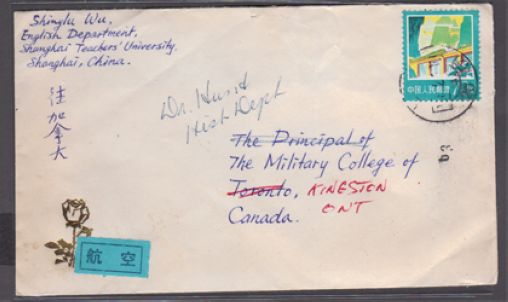 Shinglu Wu.
English Department,
Shanghai Teachers' University.
Shanghai, China.
往加拿大
Dr. Hist Dept
The Principal of
The Military College of
Toronto, KINGSTON
ONT
Canada.
中国人民邮政
航空